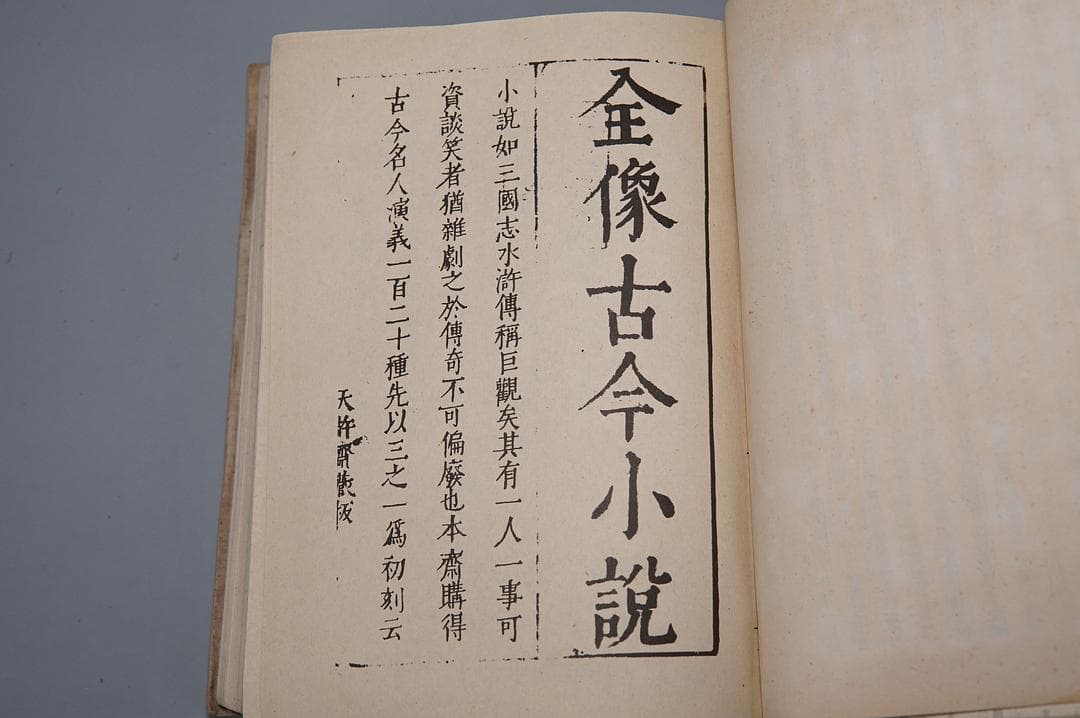 全像古今小説
小說如三國志水滸傳稱巨觀矣其有一人一事可
資談笑者猶雜劇之於傳奇不可偏廢也本齋購得
古今名人演義一百二十種先以三之一爲初刻云
天許齋藏板